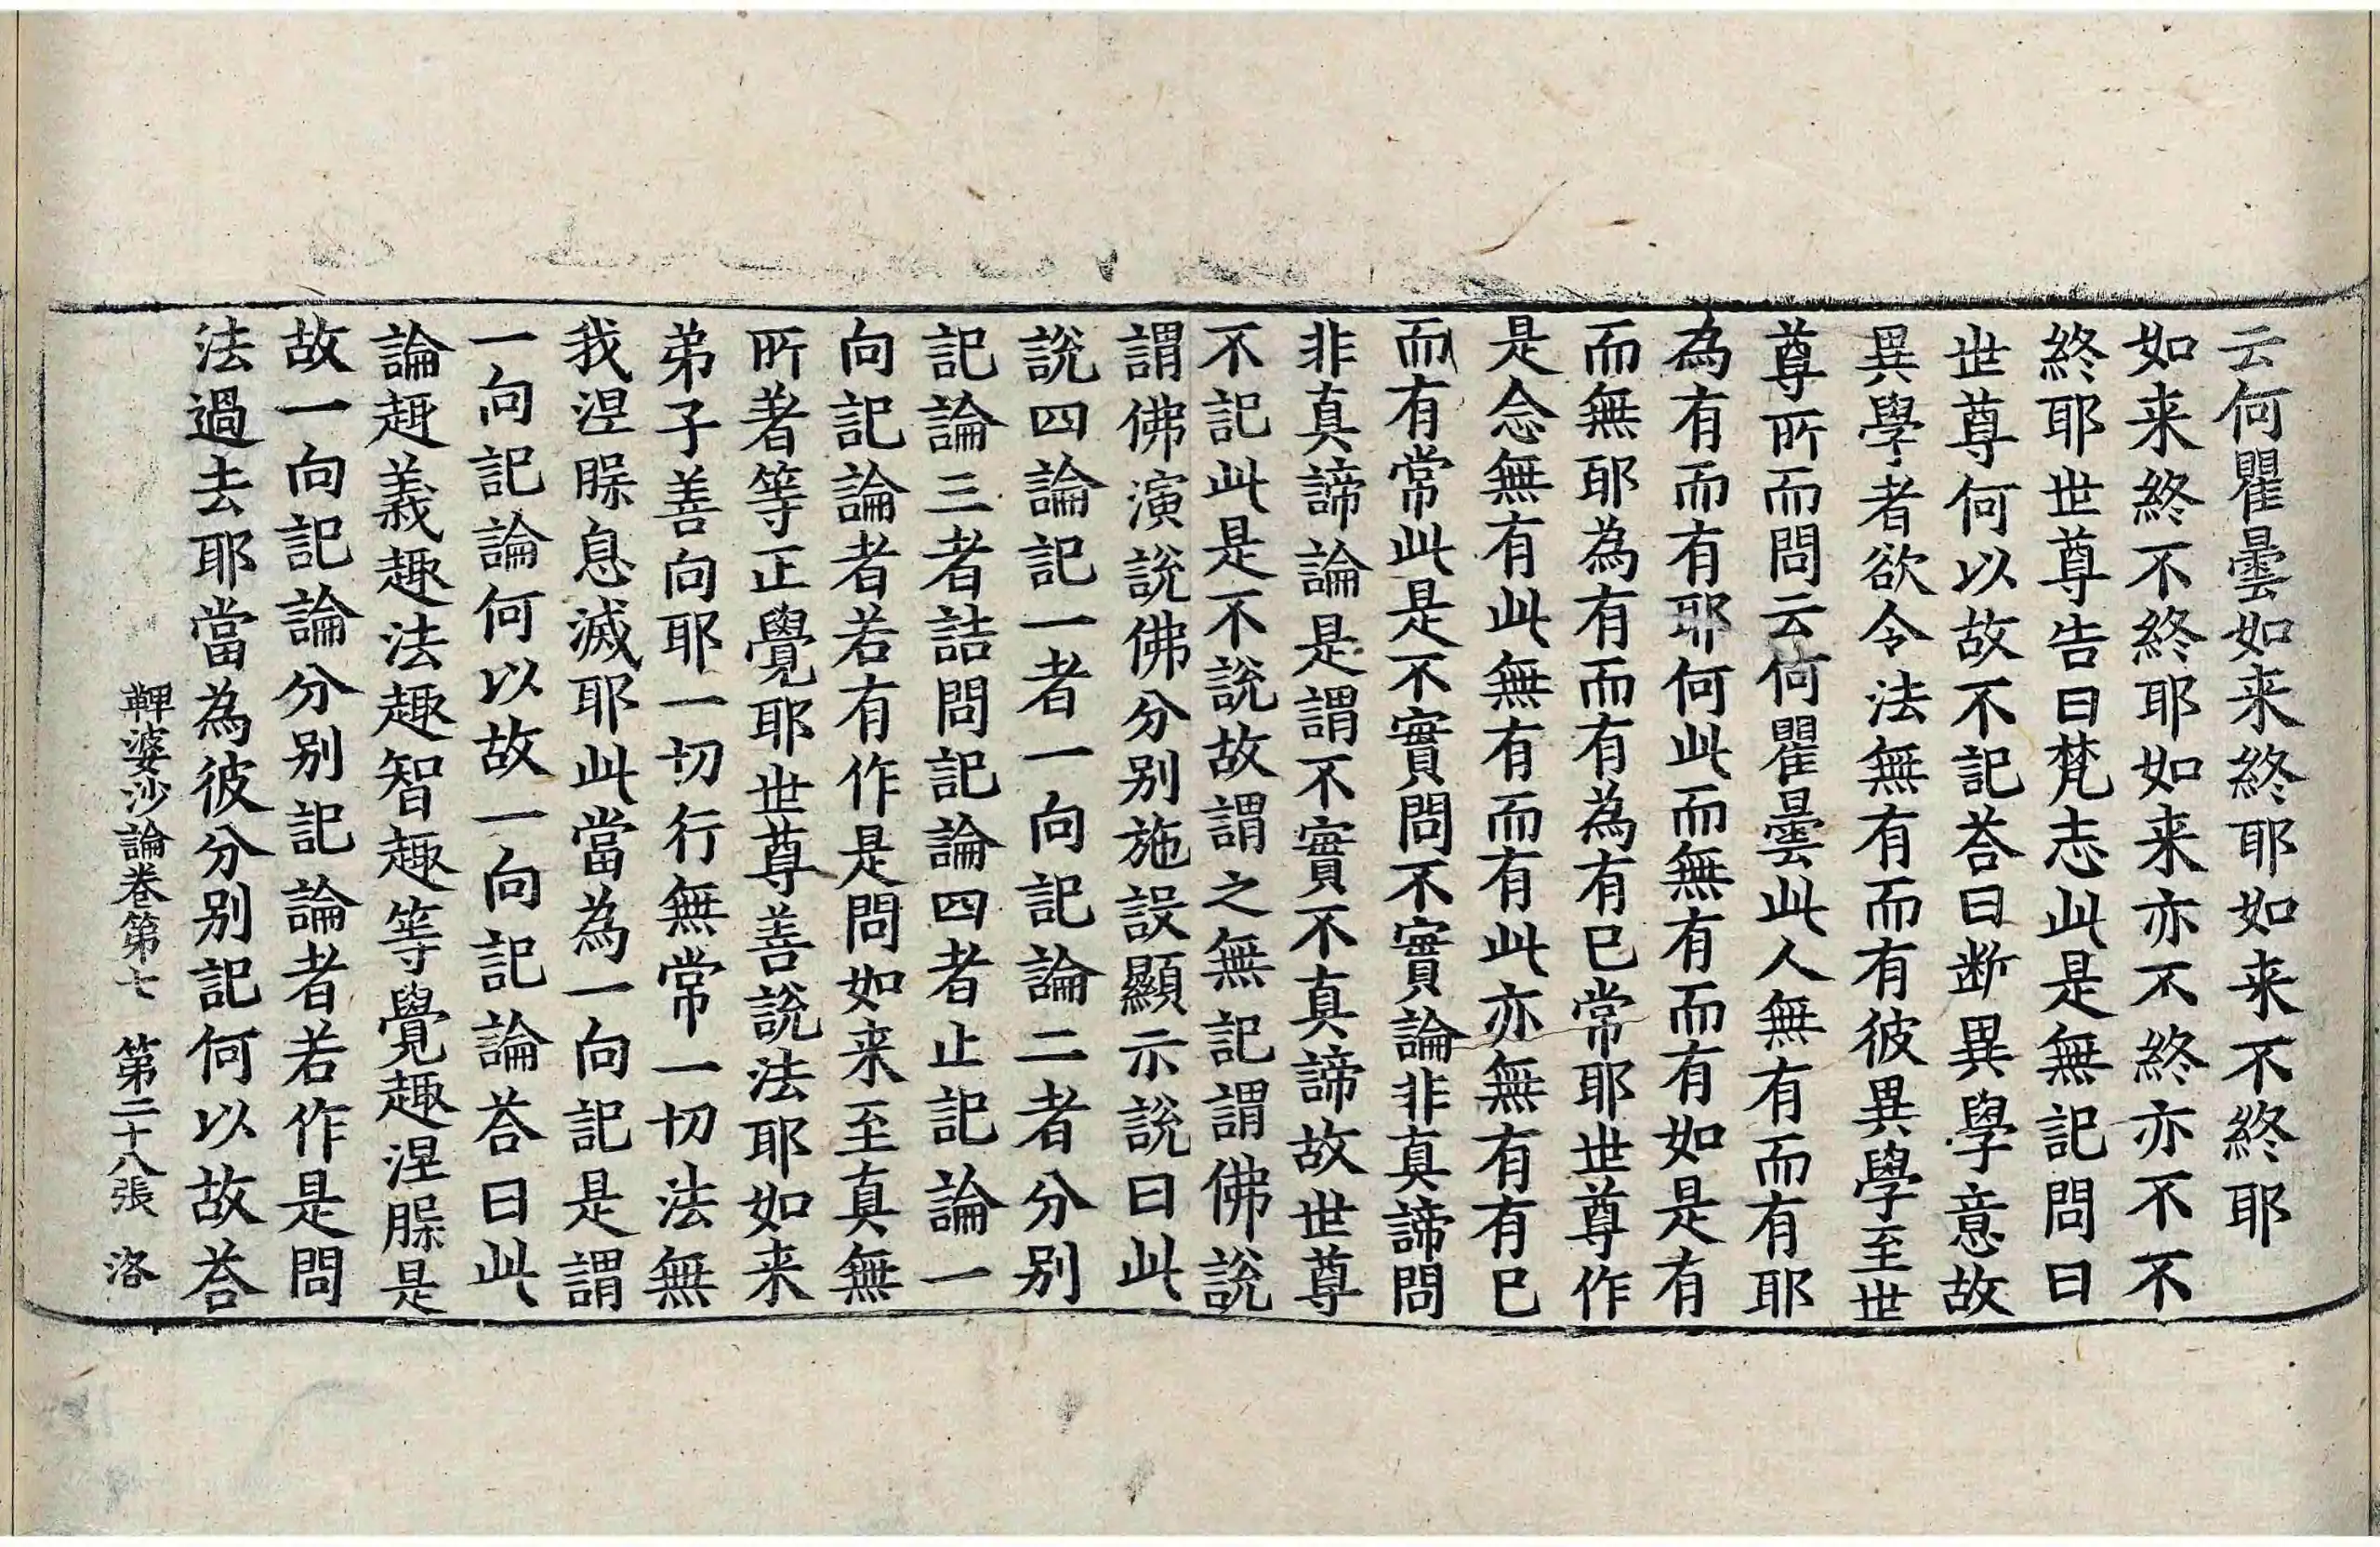 云何瞿曇如来終耶如来不終耶
如来終不終耶如来亦不終亦不不
終耶世尊告曰梵志此是無記問曰
世尊何以故不記荅曰断異學意故
異學者欲令法無有而有彼異學至世
尊所而問云何瞿曇此人無有而有耶
為有而有耶何此而無有而有如是有
而無耶為有而有為有已常耶世尊作
是念無有此無有而有此亦無有有已
而有常此是不實問不實論非真諦問
非真諦論是謂不實不真諦故世尊
不記此是不說故謂之無記謂佛說
謂佛演說佛分別施設顯示說曰此
說四論記一者一向記論二者分別
記論三者詰問記論四者止記論一
向記論者若有作是問如来至真無
所著等正覺耶世尊善說法耶如来
弟子善向耶一切行無常一切法無
我涅槃息滅耶此當為一向記是謂
一向記論何以故一向記論荅曰此
論趣義趣法趣智趣等覺趣涅槃是
故一向記論分別記論者若作是問
法過去耶當為彼分別記何以故荅
鞞婆沙論卷第七 第二十八張 洛